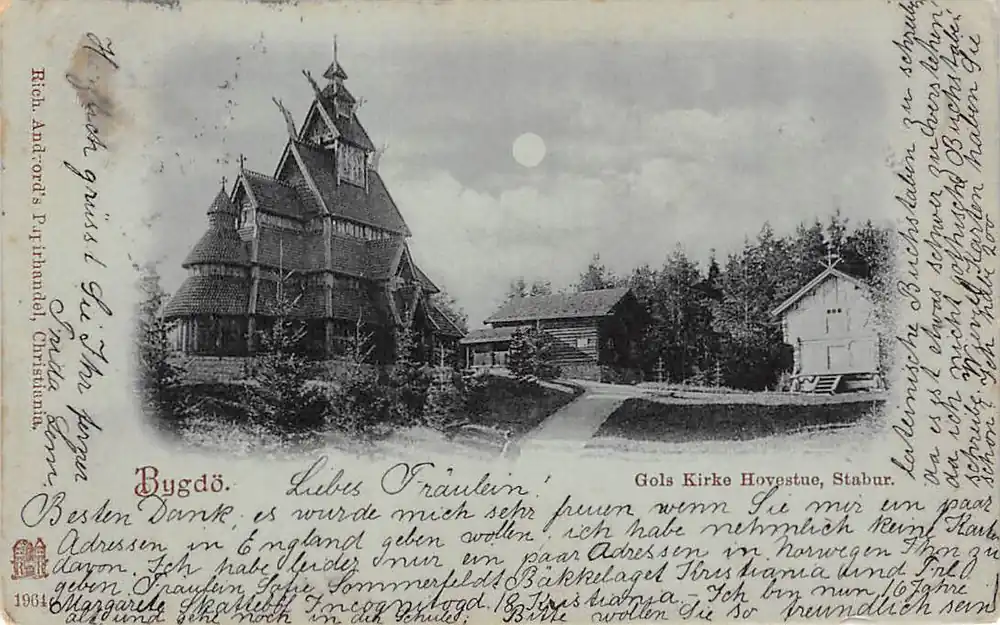 Rich. Andvord's Papirhandel, Christiania.
Bygdö.
Gols Kirke Hovestue, Stabur.
Liebes Fräulein!
Besten Dank, es wurde mich sehr freuen wenn Sie mir ein paar
Adressen in England geben wollen, ich habe nehmlich keine Karten
davon. Ich habe leider nur ein paar Adressen in Norwegen Ihn zu
geben. Fräulein Sofie Sommerfeldt Bakkelaget Kristiania und Frl.
Margarete Skattebol Incognitogd. 18 Kristiania. - Ich bin nun 16 Jahre
alt und gehe noch in der Schule; Bitte wollen Sie so freundlich sein
lateinische Buchstaben zu schreiben,
da es so etwas schwer zu verstehen,
da ich nicht gotische Buchstaben
schreibe. Vierzig Karten haben Sie
schon? Ich habe 200
Herzlich grüsst Sie Ihr
Frida
1964